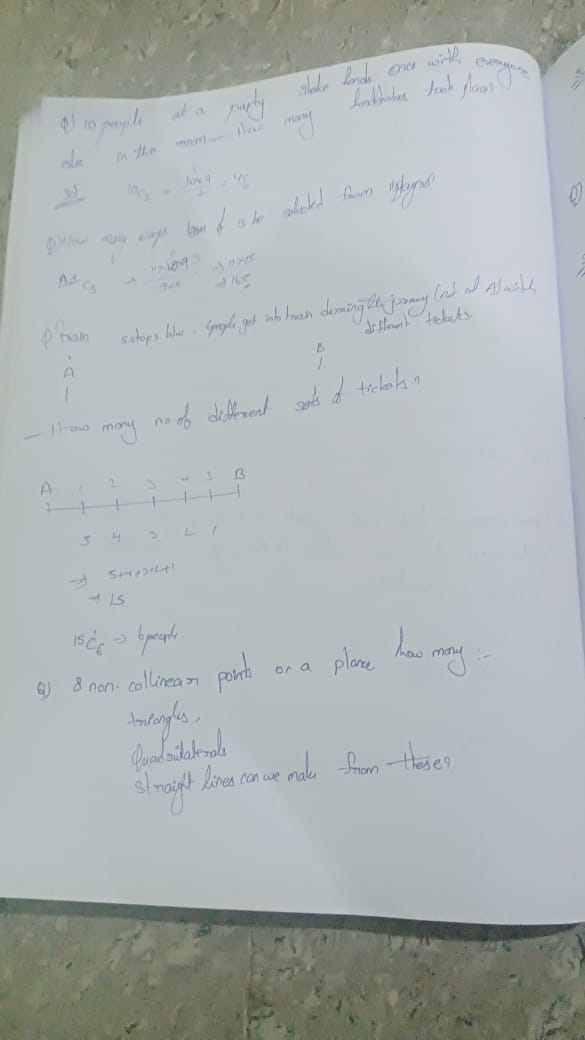 Q) 10 people at a party shake hands once with everyone
else in the room. How many handshakes took place?
Sol 10C2 = 10×9/2 = 45
Q) How many ways team of is be selected from 11 players?
11C3 → → 11×15
→ 165
Q) train stops b/w. people get into train during the journey (not at A) with
different tickets.
A B
How many no of different sets of tickets?
A 1 2 3 4 5 B
5 4 3 2 1
⇒ 5+4+3+2+1
→ 15
15C6 → 6 people
Q) 8 non-collinear points or a plane how many :-
triangles,
Quadrilaterals
straight lines can we make from these?